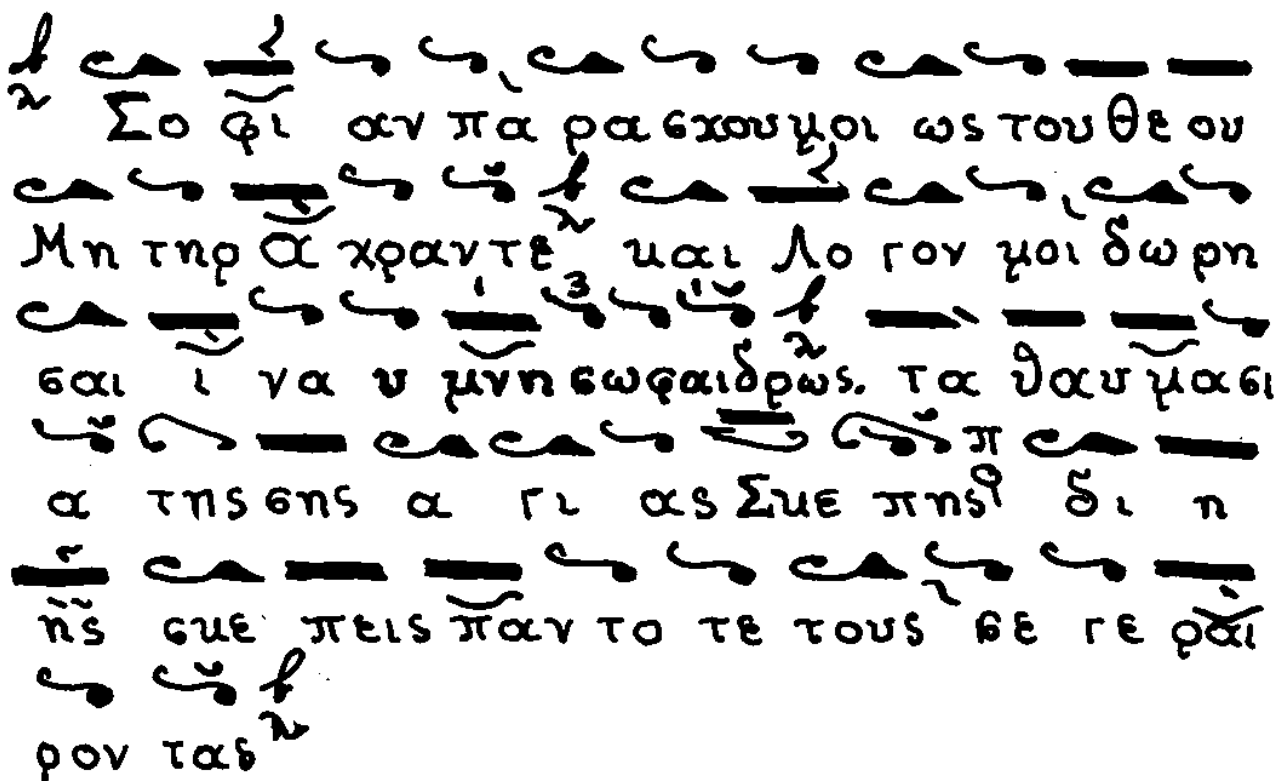 Σο φι αν πα ρα σχου μοι ως του Θε ου
Μη τηρ α χραν τε και Λο γον μοι δω ρη
σαι ι να υ μνη σω φαι δρως. τα θαυ μα σι
α της σης α γι ας Σκε πης δι η
ης σκε πεις παν το τε τους σε γε ραι
ρον τας